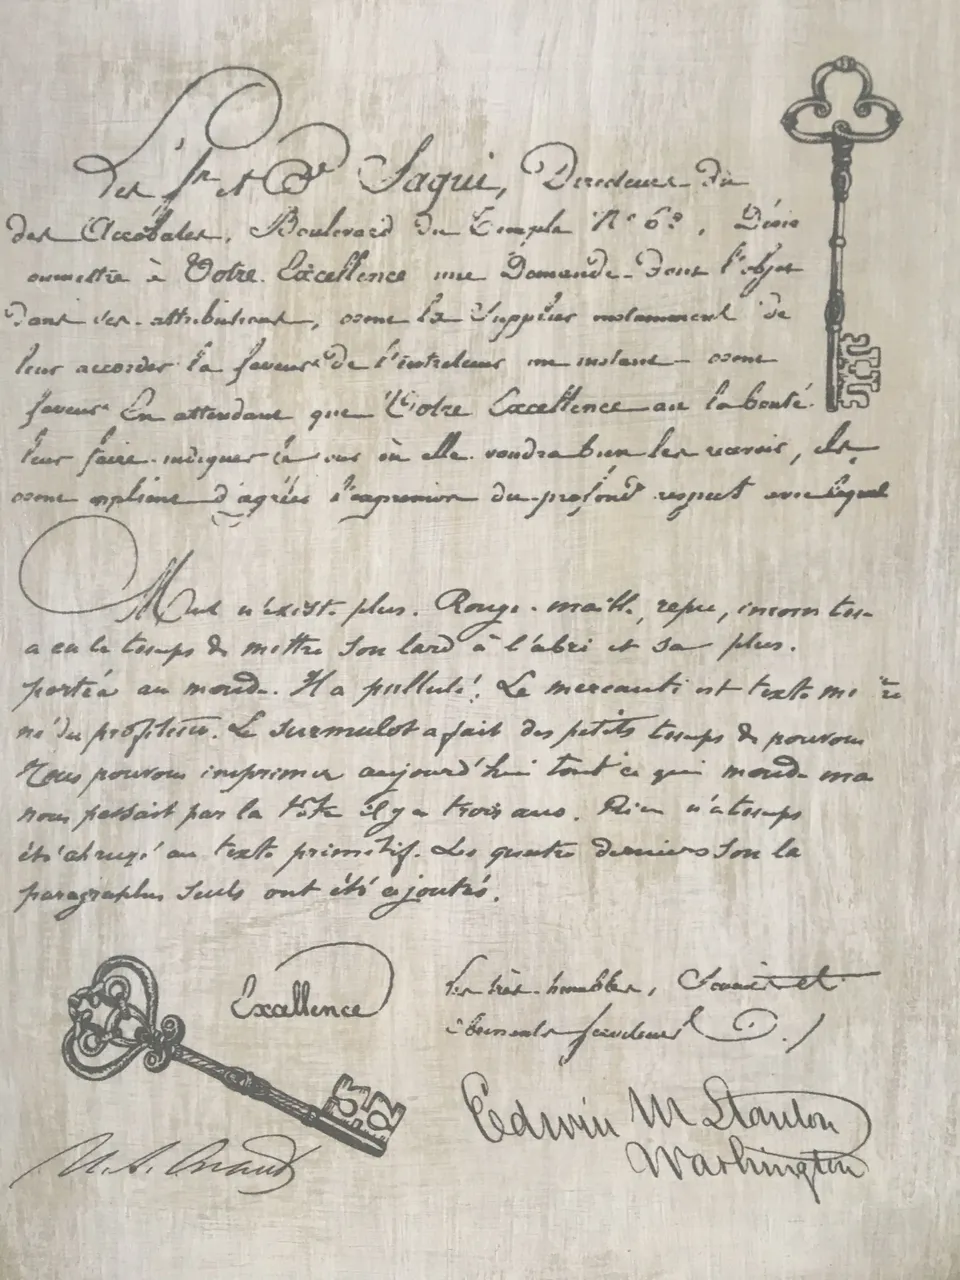 Les fr et Saqui, Directeurs du
des Acrobates, Boulevard du Temple N° 62, Désir
ommettre à Votre Excellence une Demande Dont l'objet
Dans ses attributions, osent la Supplier notamment de
leur accorder la faveur de l'entretenir un instant osent
faveur En attendant que Votre Excellence au la bonté
leur faire indiquer le où elle voudra bien les recevoir, ils
osent d'agréer l'expression du profond respect avec lequel
n'existe plus. Rouge repu,
a eu le temps de mettre son lard à l'abri et sa plus.
portéa au monde. Il a pullulé! Le mercanti est texte
né du profiteur. Le surmulot a fait des petits temps de pouvons
Nous pouvons imprimer aujourd'hui tout ce qui monde ma
nous passait par la tête il y a trois ans. Rien n'a temps
été ahrugé au texte primitif. Les quatre derniers son la
paragraphes seuls ont été ajoutés.
Excellence
Les très humbles, et
serviteurs
Edwin M Stanton
Washington
U.S. Grant